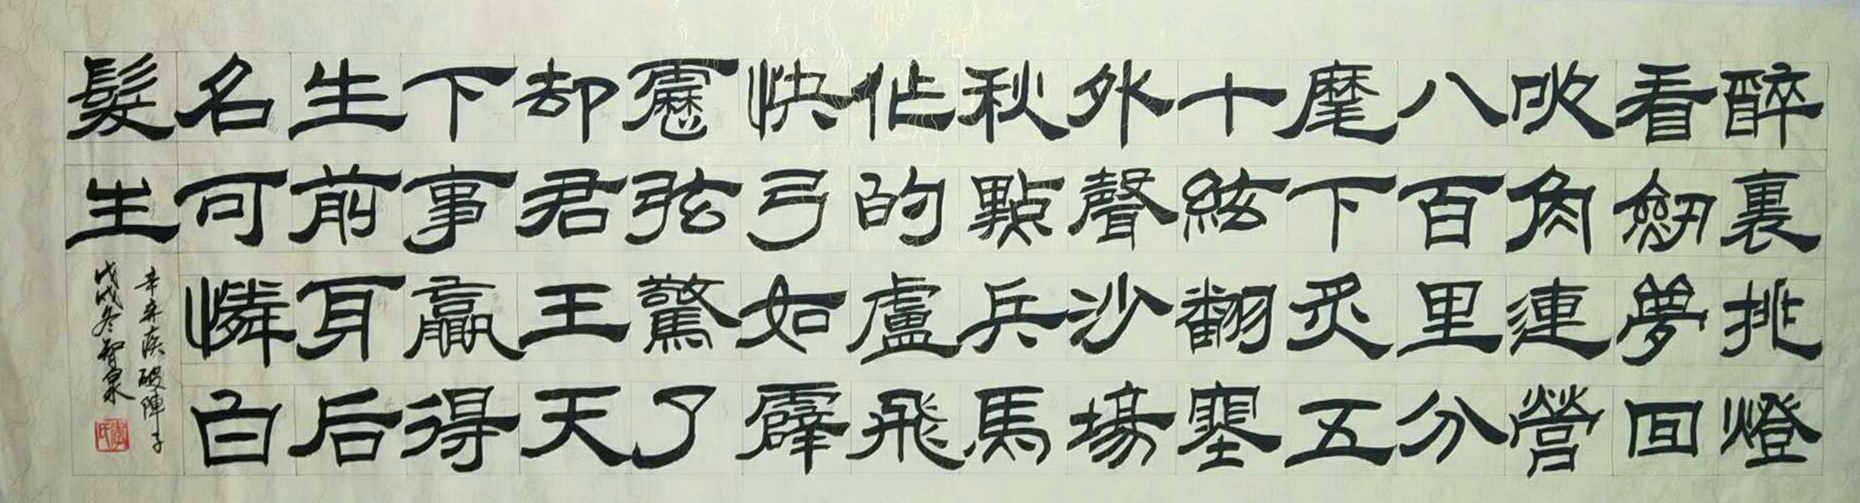 醉裏挑燈
看劒夢回
吹角連營
八百里分
麾下炙五
十絃翻塞
外聲沙場
秋點兵馬
作的盧飛
快弓如霹
靂弦驚了
却君王天
下事贏得
生前身后
名可憐白
髮生
辛弃疾破陣子
戊戌冬智泉